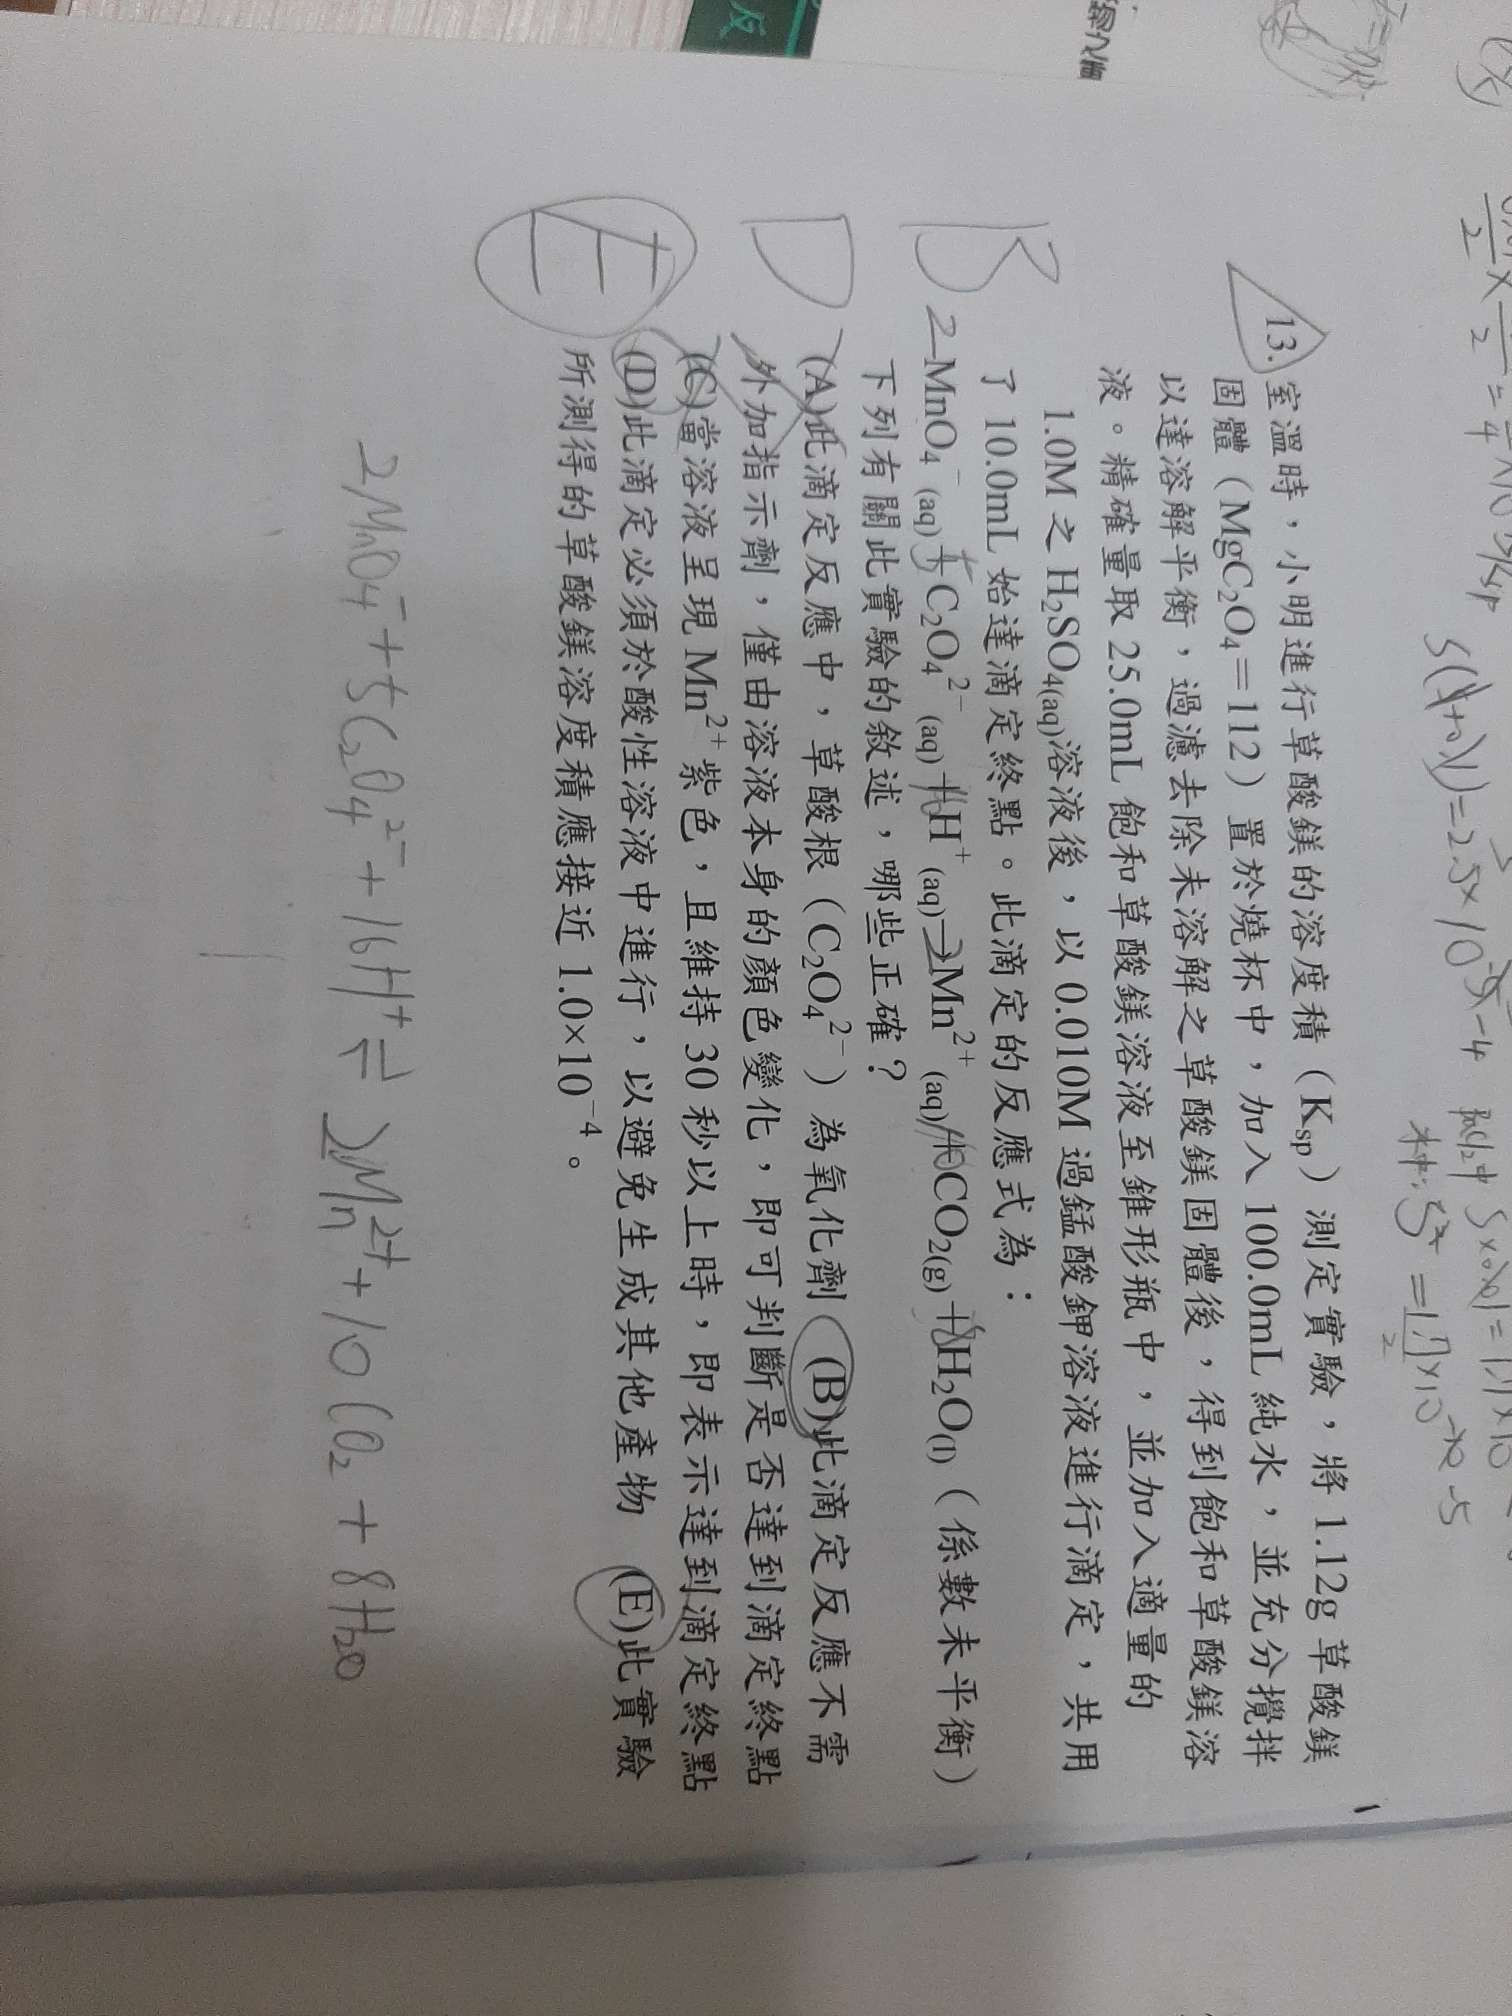 13. 室溫時，小明進行草酸鎂的溶度積（Ksp）測定實驗，將 1.12g 草酸鎂
固體（MgC₂O₄＝112）置於燒杯中，加入 100.0mL 純水，並充分攪拌
以達溶解平衡，過濾去除未溶解之草酸鎂固體後，得到飽和草酸鎂溶
液。精確量取 25.0mL 飽和草酸鎂溶液至錐形瓶中，並加入適量的
1.0M 之 H₂SO₄(aq)溶液後，以 0.010M 過錳酸鉀溶液進行滴定，共用
了 10.0mL 始達滴定終點。此滴定的反應式為：
B
2 MnO₄⁻(aq)＋5 C₂O₄²⁻(aq)＋16 H⁺(aq)→2 Mn²⁺(aq)＋10 CO₂(g)＋8 H₂O(l)（係數未平衡）
下列有關此實驗的敘述，哪些正確？
D
(A)此滴定反應中，草酸根（C₂O₄²⁻）為氧化劑 (B)此滴定反應不需
外加指示劑，僅由溶液本身的顏色變化，即可判斷是否達到滴定終點
(C)當溶液呈現 Mn²⁺紫色，且維持 30 秒以上時，即表示達到滴定終點
E
(D)此滴定必須於酸性溶液中進行，以避免生成其他產物 (E)此實驗
所測得的草酸鎂溶度積應接近 1.0×10⁻⁴。
2MnO₄⁻ + 5C₂O₄²⁻ + 16H⁺ ⇌ 2Mn²⁺ + 10CO₂ + 8H₂O
反